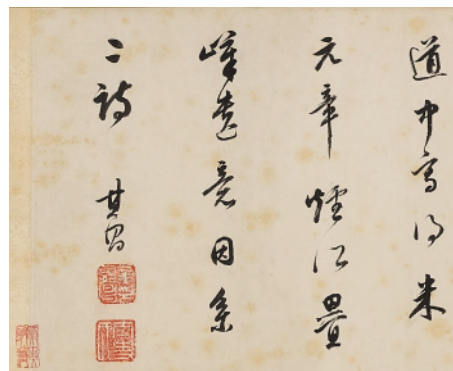 道中寫得米
元章煙江疊
嶂遺意因系
二詩
其昌